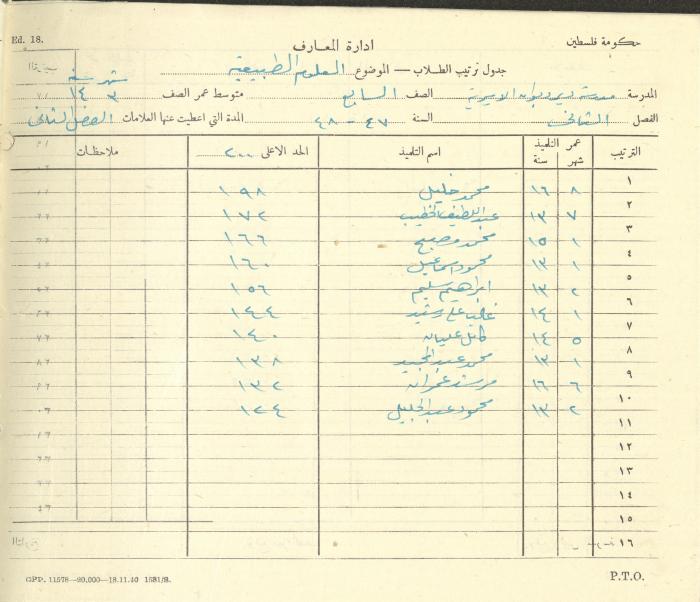 Ed. 18.
حكومة فلسطين
ادارة المعارف
جدول ترتيب الطلاب — الموضوع العلوم الطبيعية
شهر سنة
المدرسة مدرسة دير ديوان الاميرية الصف السابع متوسط عمر الصف ٣ ١٤
الفصل الثاني السنة ٤٧ - ٤٨ المدة التي اعطيت عنها العلامات الفصل الثاني
الترتيب عمر التلميذ شهر سنة اسم التلميذ الحد الاعلى ٢٠٠ ملاحظات
١ ٨ ١٦ محمد خليل ١٩٨
٢ ٧ ١٣ عبد اللطيف الخطيب ١٧٢
٣ ١ ١٥ محمد مصبح ١٦٦
٤ ١ ١٣ محمود اسماعيل ١٦٠
٥ ٢ ١٣ ابراهيم سليم ١٥٦
٦ ١ ١٤ علي رشيد ١٤٤
٧ ٥ ١٤ كامل عليان ١٤٠
٨ ١ ١٣ محمد عبد المجيد ١٣٨
٩ ٦ ١٦ مرشد عمران ١٣٢
١٠ ٢ ١٣ محمود عبد الجليل ١٢٤
١١
١٢
١٣
١٤
١٥
١٦
GPP. 11578—20.000—18.11.40 1581/B.
P.T.O.